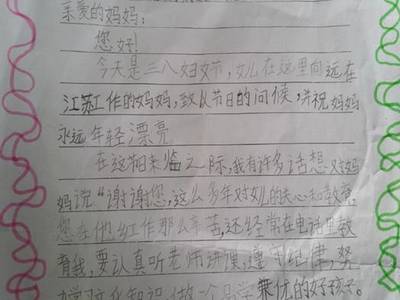 亲爱的妈妈:
您好!
今天是三八妇女节,女儿在这里向远在
江苏工作的妈妈,致以节日的问候,并祝妈妈
永远年轻漂亮
在这 来临之际,我有许多话想对妈
妈说“谢谢您,这么多年对女儿的关心和教育,
您在他 工作那么辛苦,还经常在电话里教
育我,要认真听老师讲课,遵守纪律,努
力学习文化知识,做一个品学兼优的好孩子。